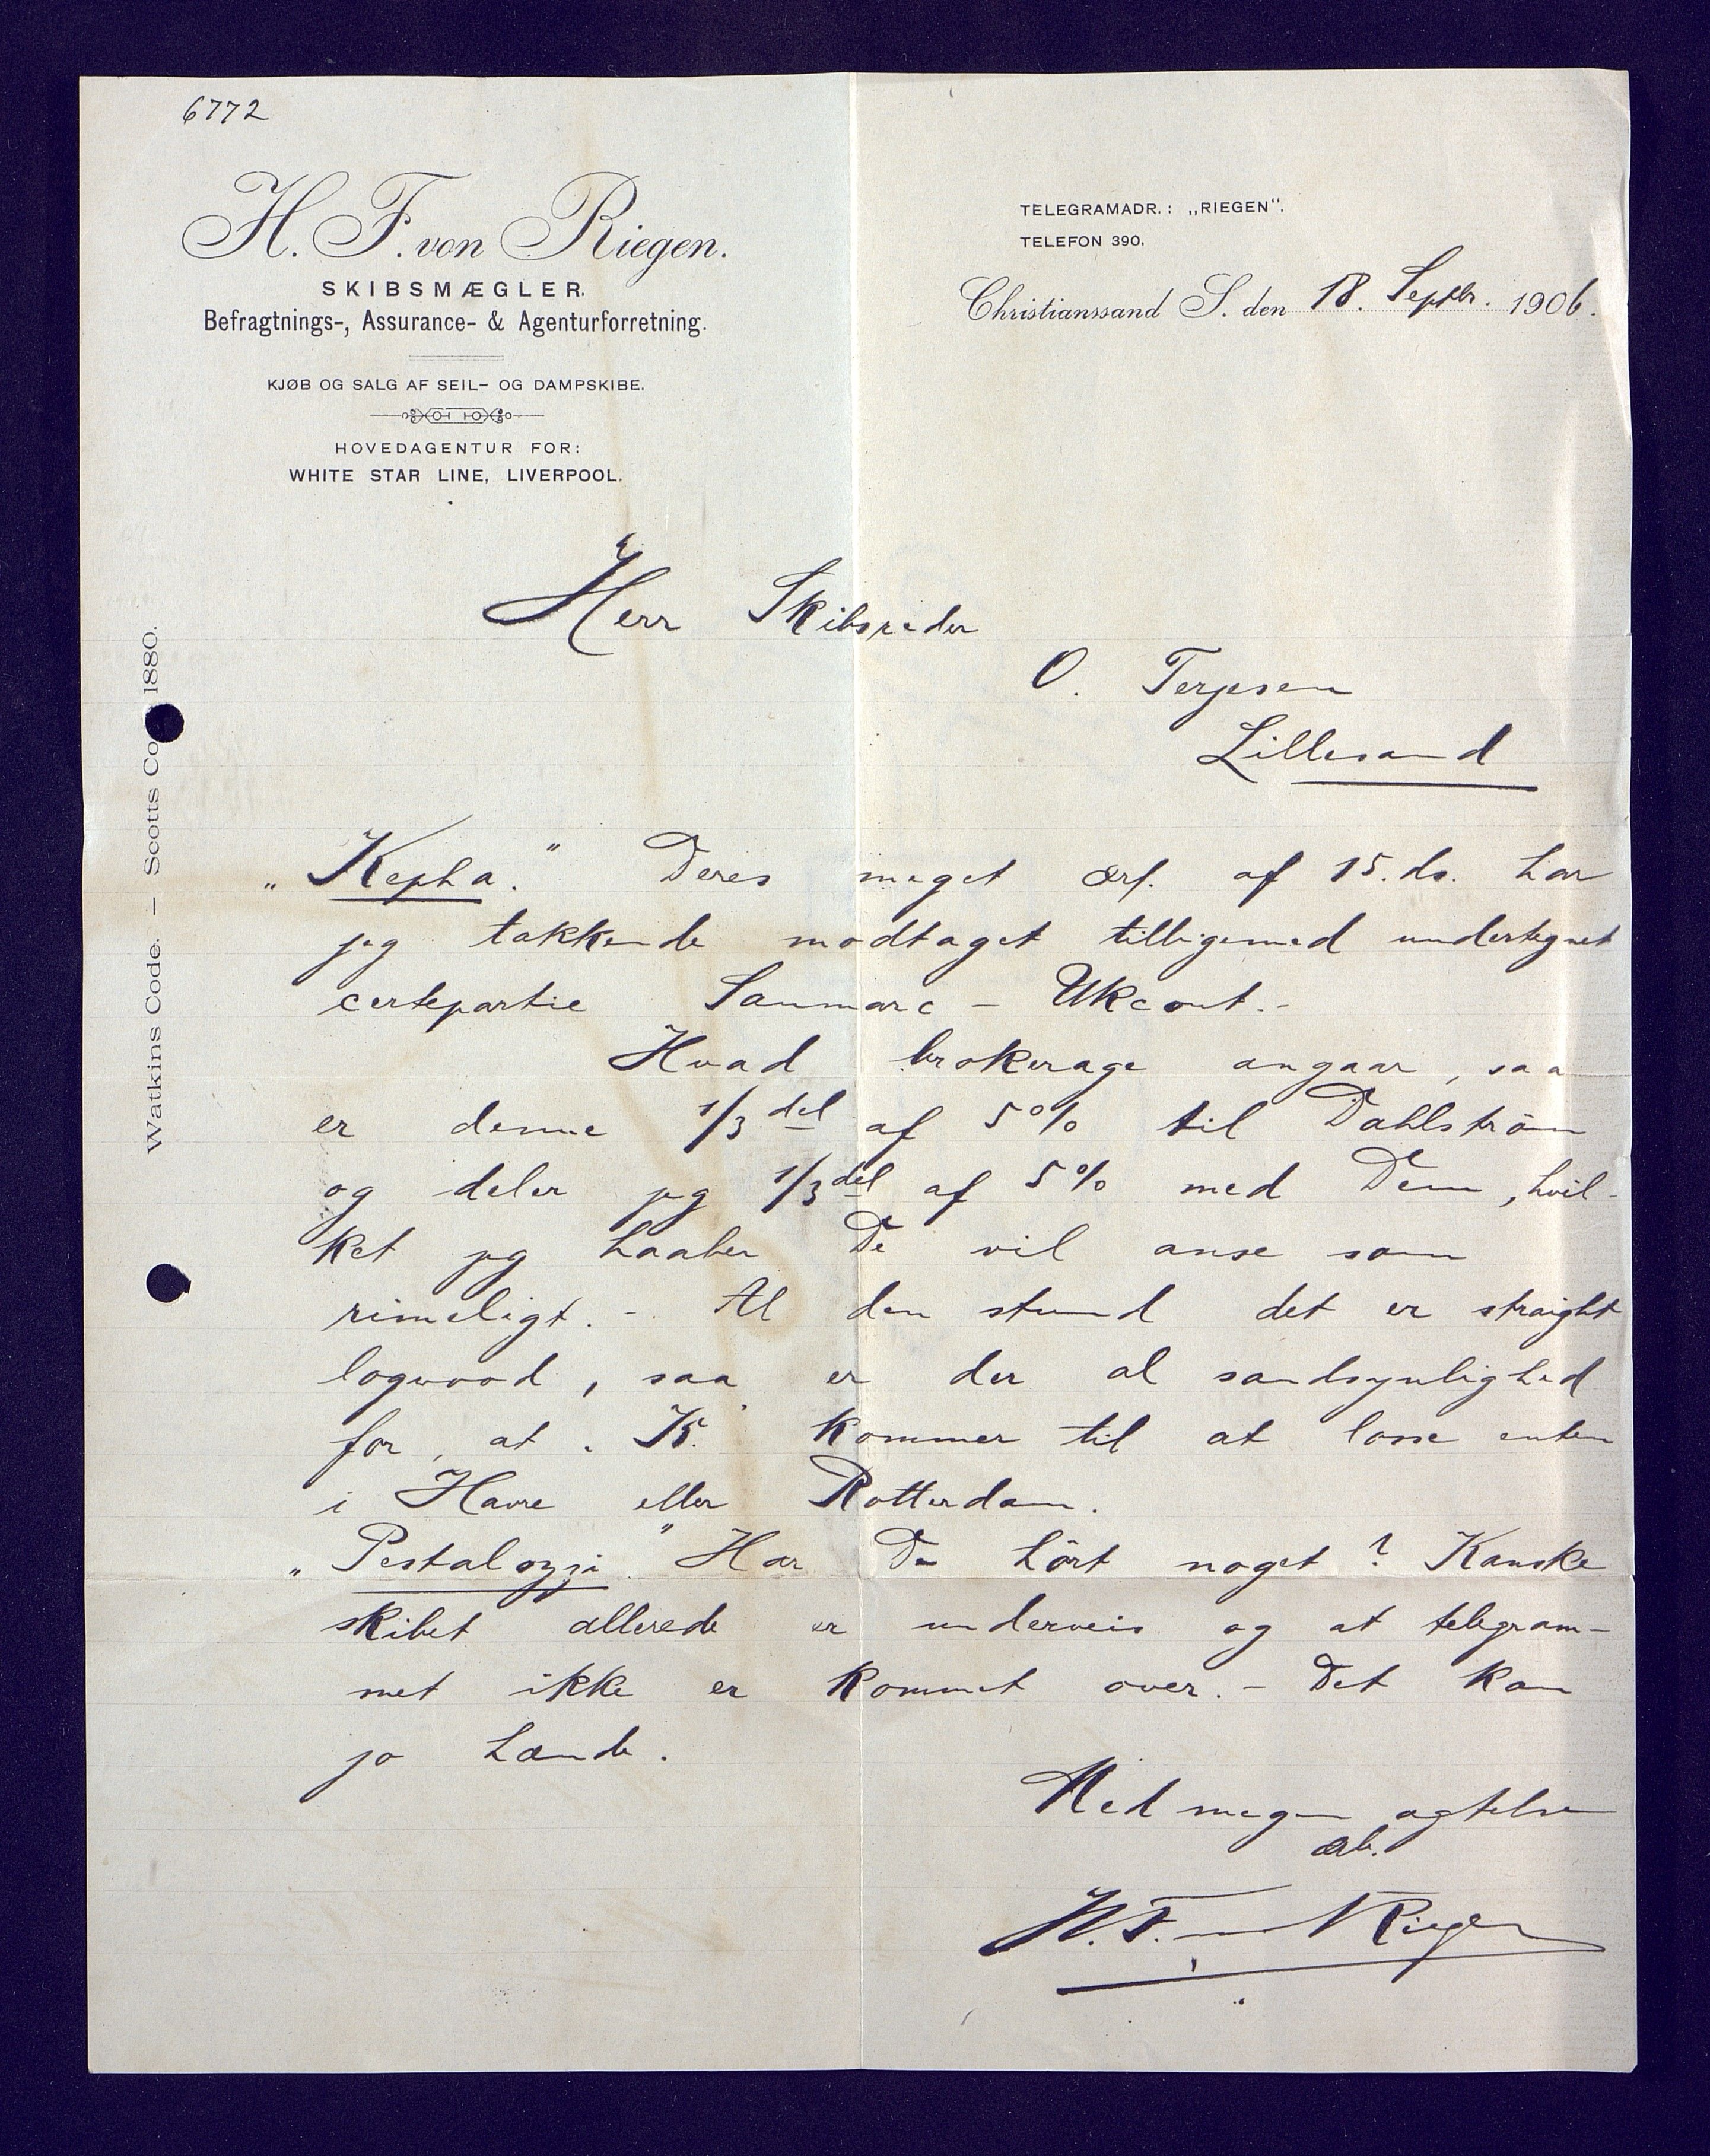 6772
H. F. von Riegen.
SKIBSMÆGLER.
Befragtnings-, Assurance- & Agenturforretning.
KJØB OG SALG AF SEIL- OG DAMPSKIBE.
HOVEDAGENTUR FOR:
WHITE STAR LINE, LIVERPOOL.
TELEGRAMADR.: „RIEGEN".
TELEFON 390.
Christianssand S. den 18. Septbr. 1906.
Watkins Code. – Scotts Co 1880.
Herr Skibsreder
O. Terjesen
Lillesand
„Kepha." Deres meget ærf. af 15. ds. har
jeg takkende modtaget tilligemed undertegnet
certepartie Sanmarc – Ukcont. –
Hvad brokerage angaar, saa
er denne 1/3 del af 5% til Dahlström
og deler jeg 1/3 del af 5% med Dem, hvil-
ket jeg haaber De vil anse som
rimeligt. – Al den stund det er straight
logwood, saa er der al sandsynlighed
for, at „K." kommer til at losse enten
i Havre eller Rotterdam.
„Pestalozzi". Har De hört noget? Kanske
skibet allerede er underveis og at telegram-
met ikke er kommet over. – Det kan
jo hænde.
Med megen agtelse
ærb.
H. F. von Riegen